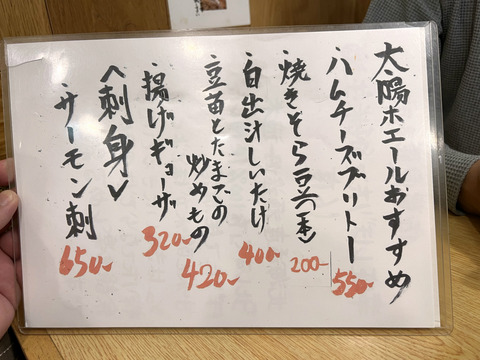 太陽ホエールおすすめ
・ハムチーズブリトー 550-
・焼きそら豆 200-
・白出汁しいたけ 400-
・豆苗とたまごの
炒めもの 420-
・揚げギョーザ 320-
〈刺身〉
・サーモン刺 650-